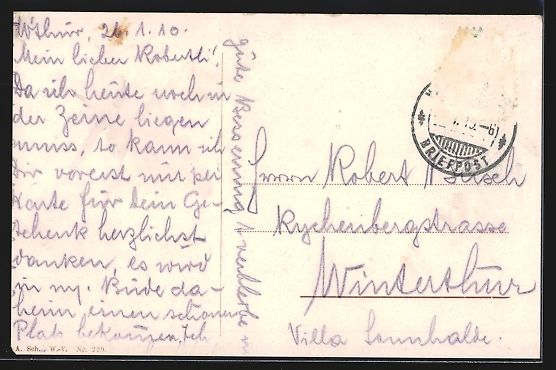 W'thur, 26.1.10.
Mein lieber Robertli!
Da ich heute noch in
der Zeine liegen
muss, so kann ich
Dir vorerst nur per
Karte für Dein Ge-
schenk herzlichst
danken, es wird
in my. Bude da-
heim einen schönen
Platz bekommen. Ich
gute Besserung
Herrn Robert
Rychenbergstrasse
Winterthur
Villa Sonnhalde.
BRIEFPOST
A. Sch., W.-V. Nr. 229.